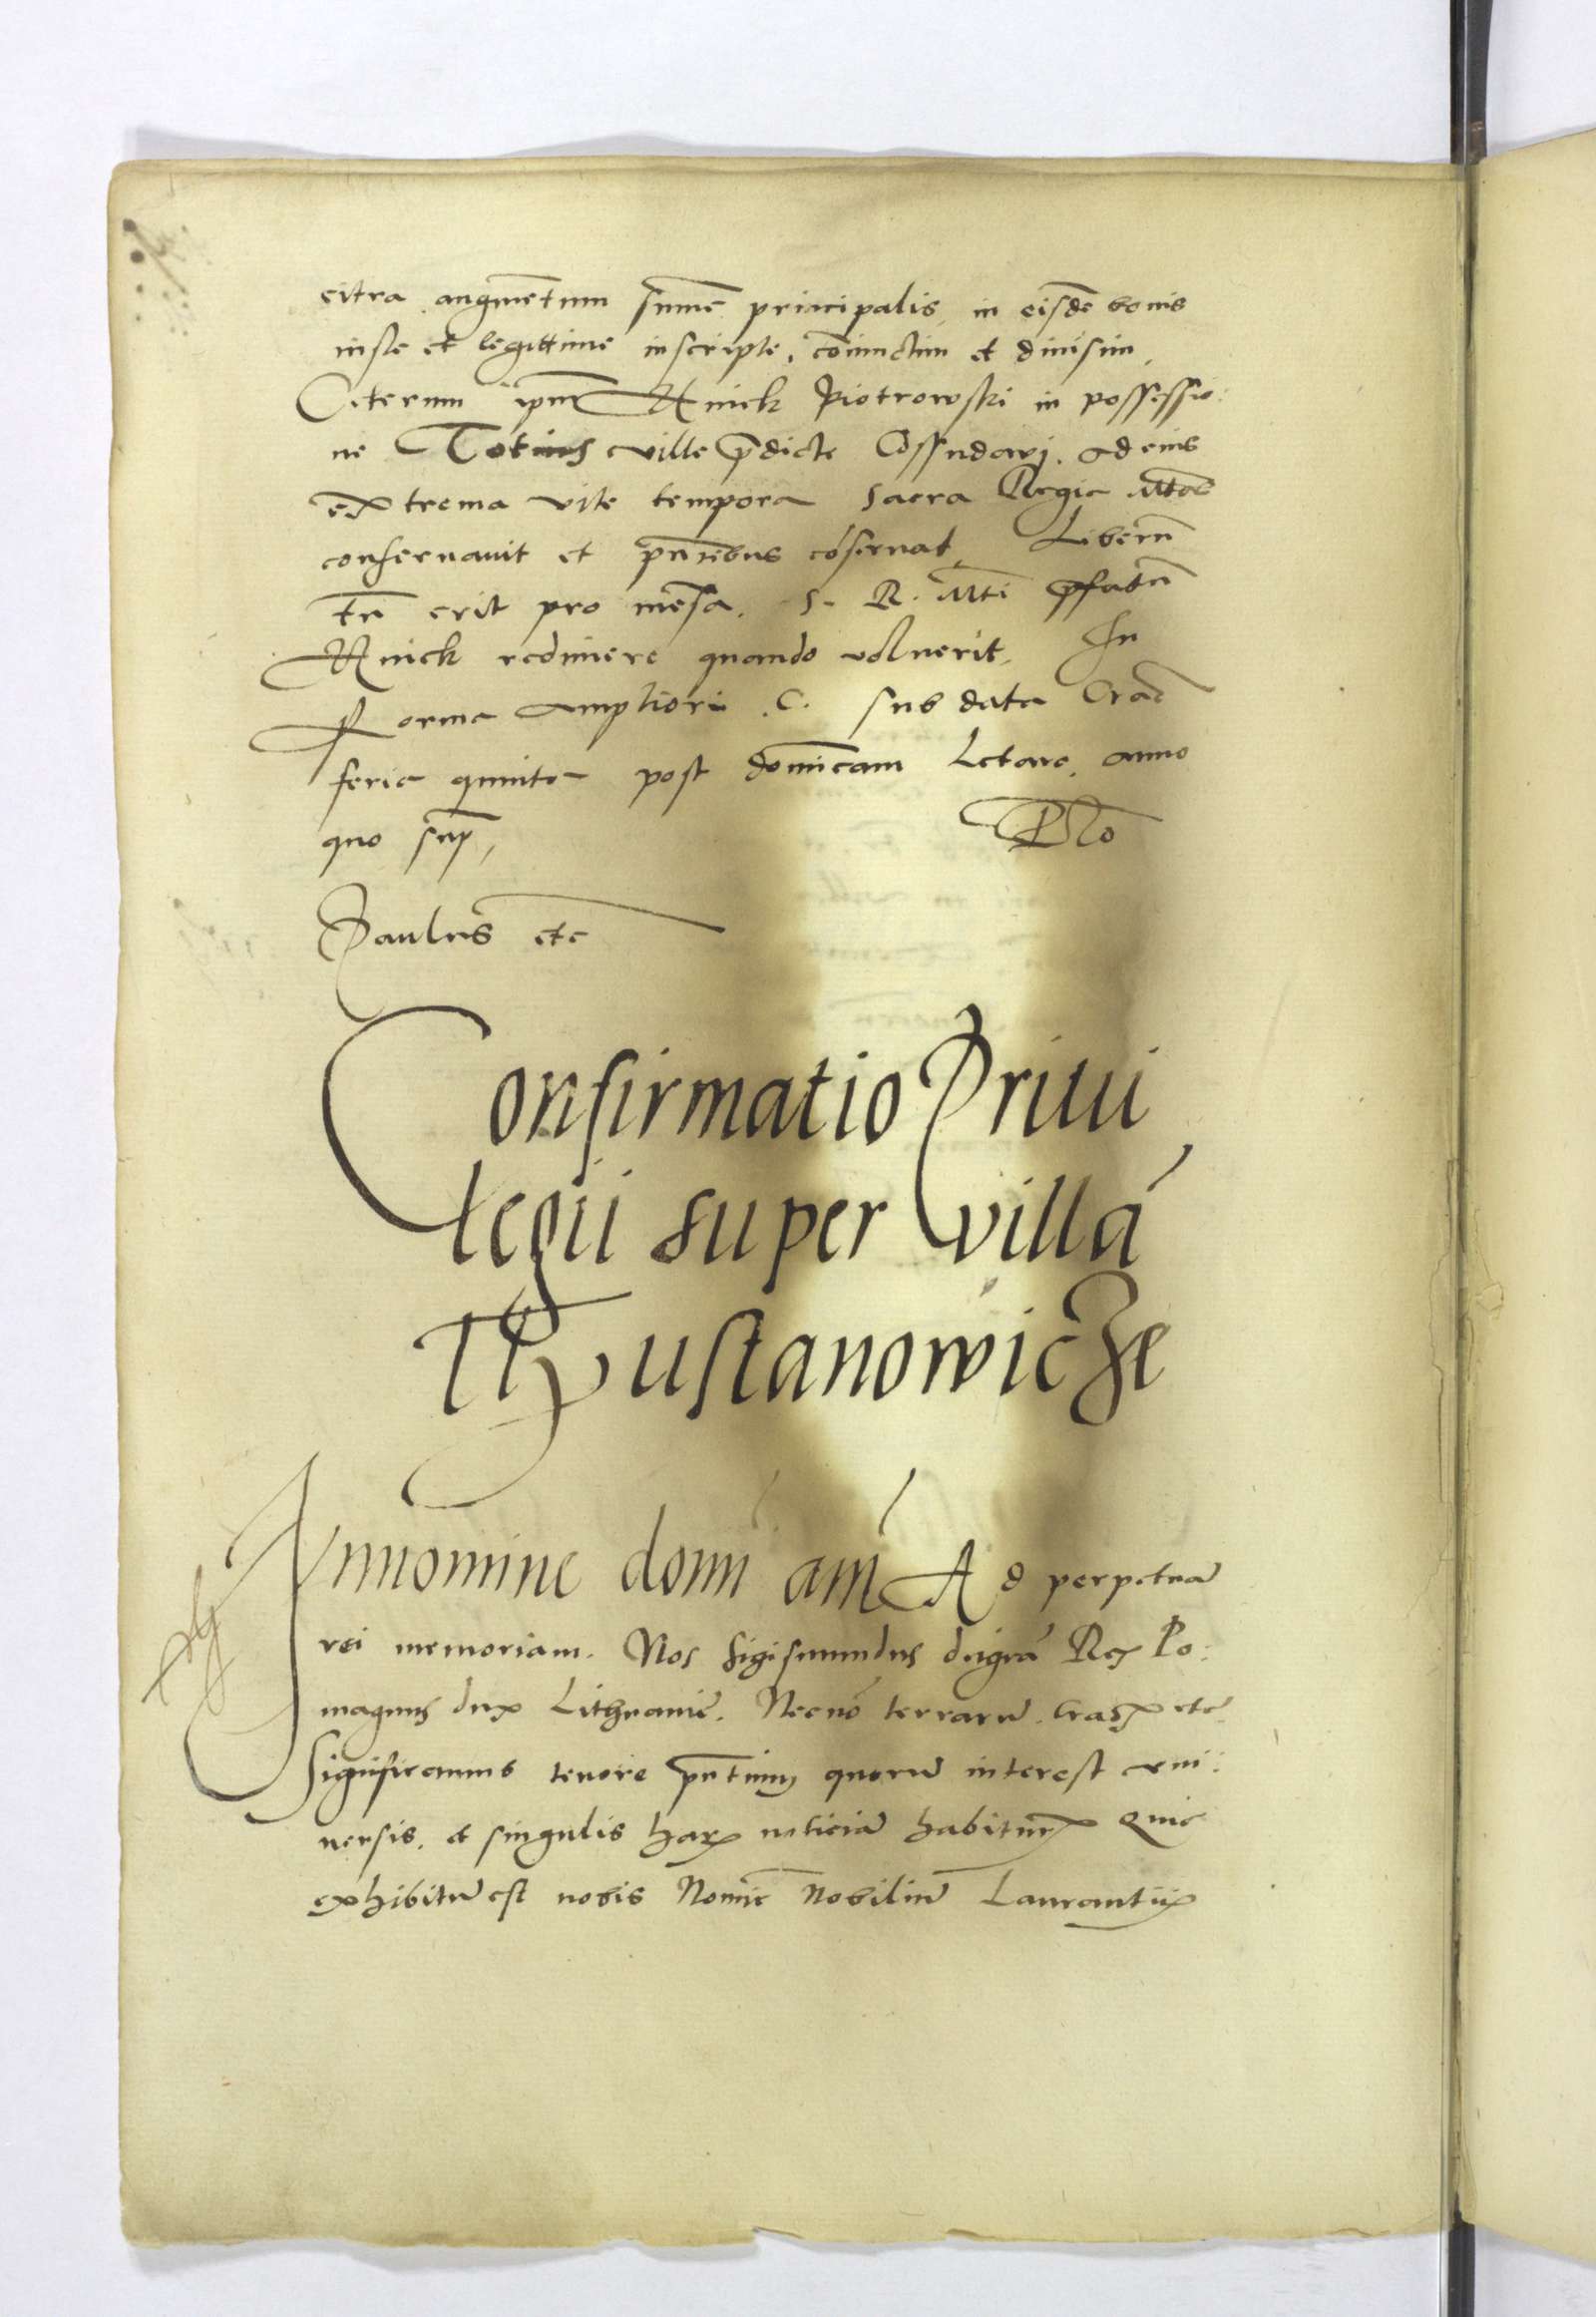 citra augmētum sum̄e principalis in eisdē bonis
iuste et legittime inscripte, coniunctim et diuisim,
Ceterum ip̄m Knick Piotrowski in possessio:
ne Totius ville p̄dicte Cossudovj. ad eius
extrema vite tempora Sacra Regia M̄tas
conseruauit et pn̄tibus cōseruat, Liberū
tn̄ erit pro mēsa. S. R. M̄ti p̄fatū
Knick redimere quando voluerit, In
Forma ampliori .C. sub data Crac̄
feria quinta post domi̅cam Letare, anno
quo sup̄,
Paulus etc
Confirmatio Priui
legii super villā
Rustanowicze
In nomine domī am̄ Ad perpetuā
rei memoriam. Nos Sigismundus dei grā Rex Po:
magnus dux Lithuanie. Necnō terrarū. Crac etc
Significamus tenore pn̄tium quorū interest vni:
uersis, et singulis harū noticiā habiturꝝ Quia
exhibitū est nobis Nomi̅e Nobiliū Laurentii